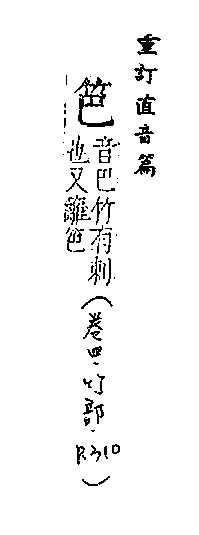 重訂直音篇
笆
音巴竹有刺
也又籬笆
(卷四·竹部·P.310)